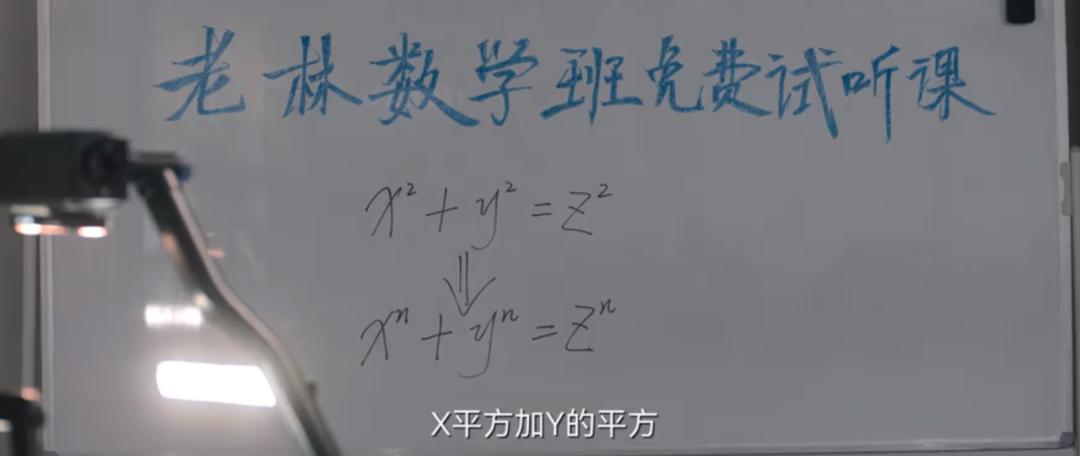 老林数学班免费试听课
x²+y²=z²
⇓
xⁿ+yⁿ=zⁿ
X平方加Y的平方